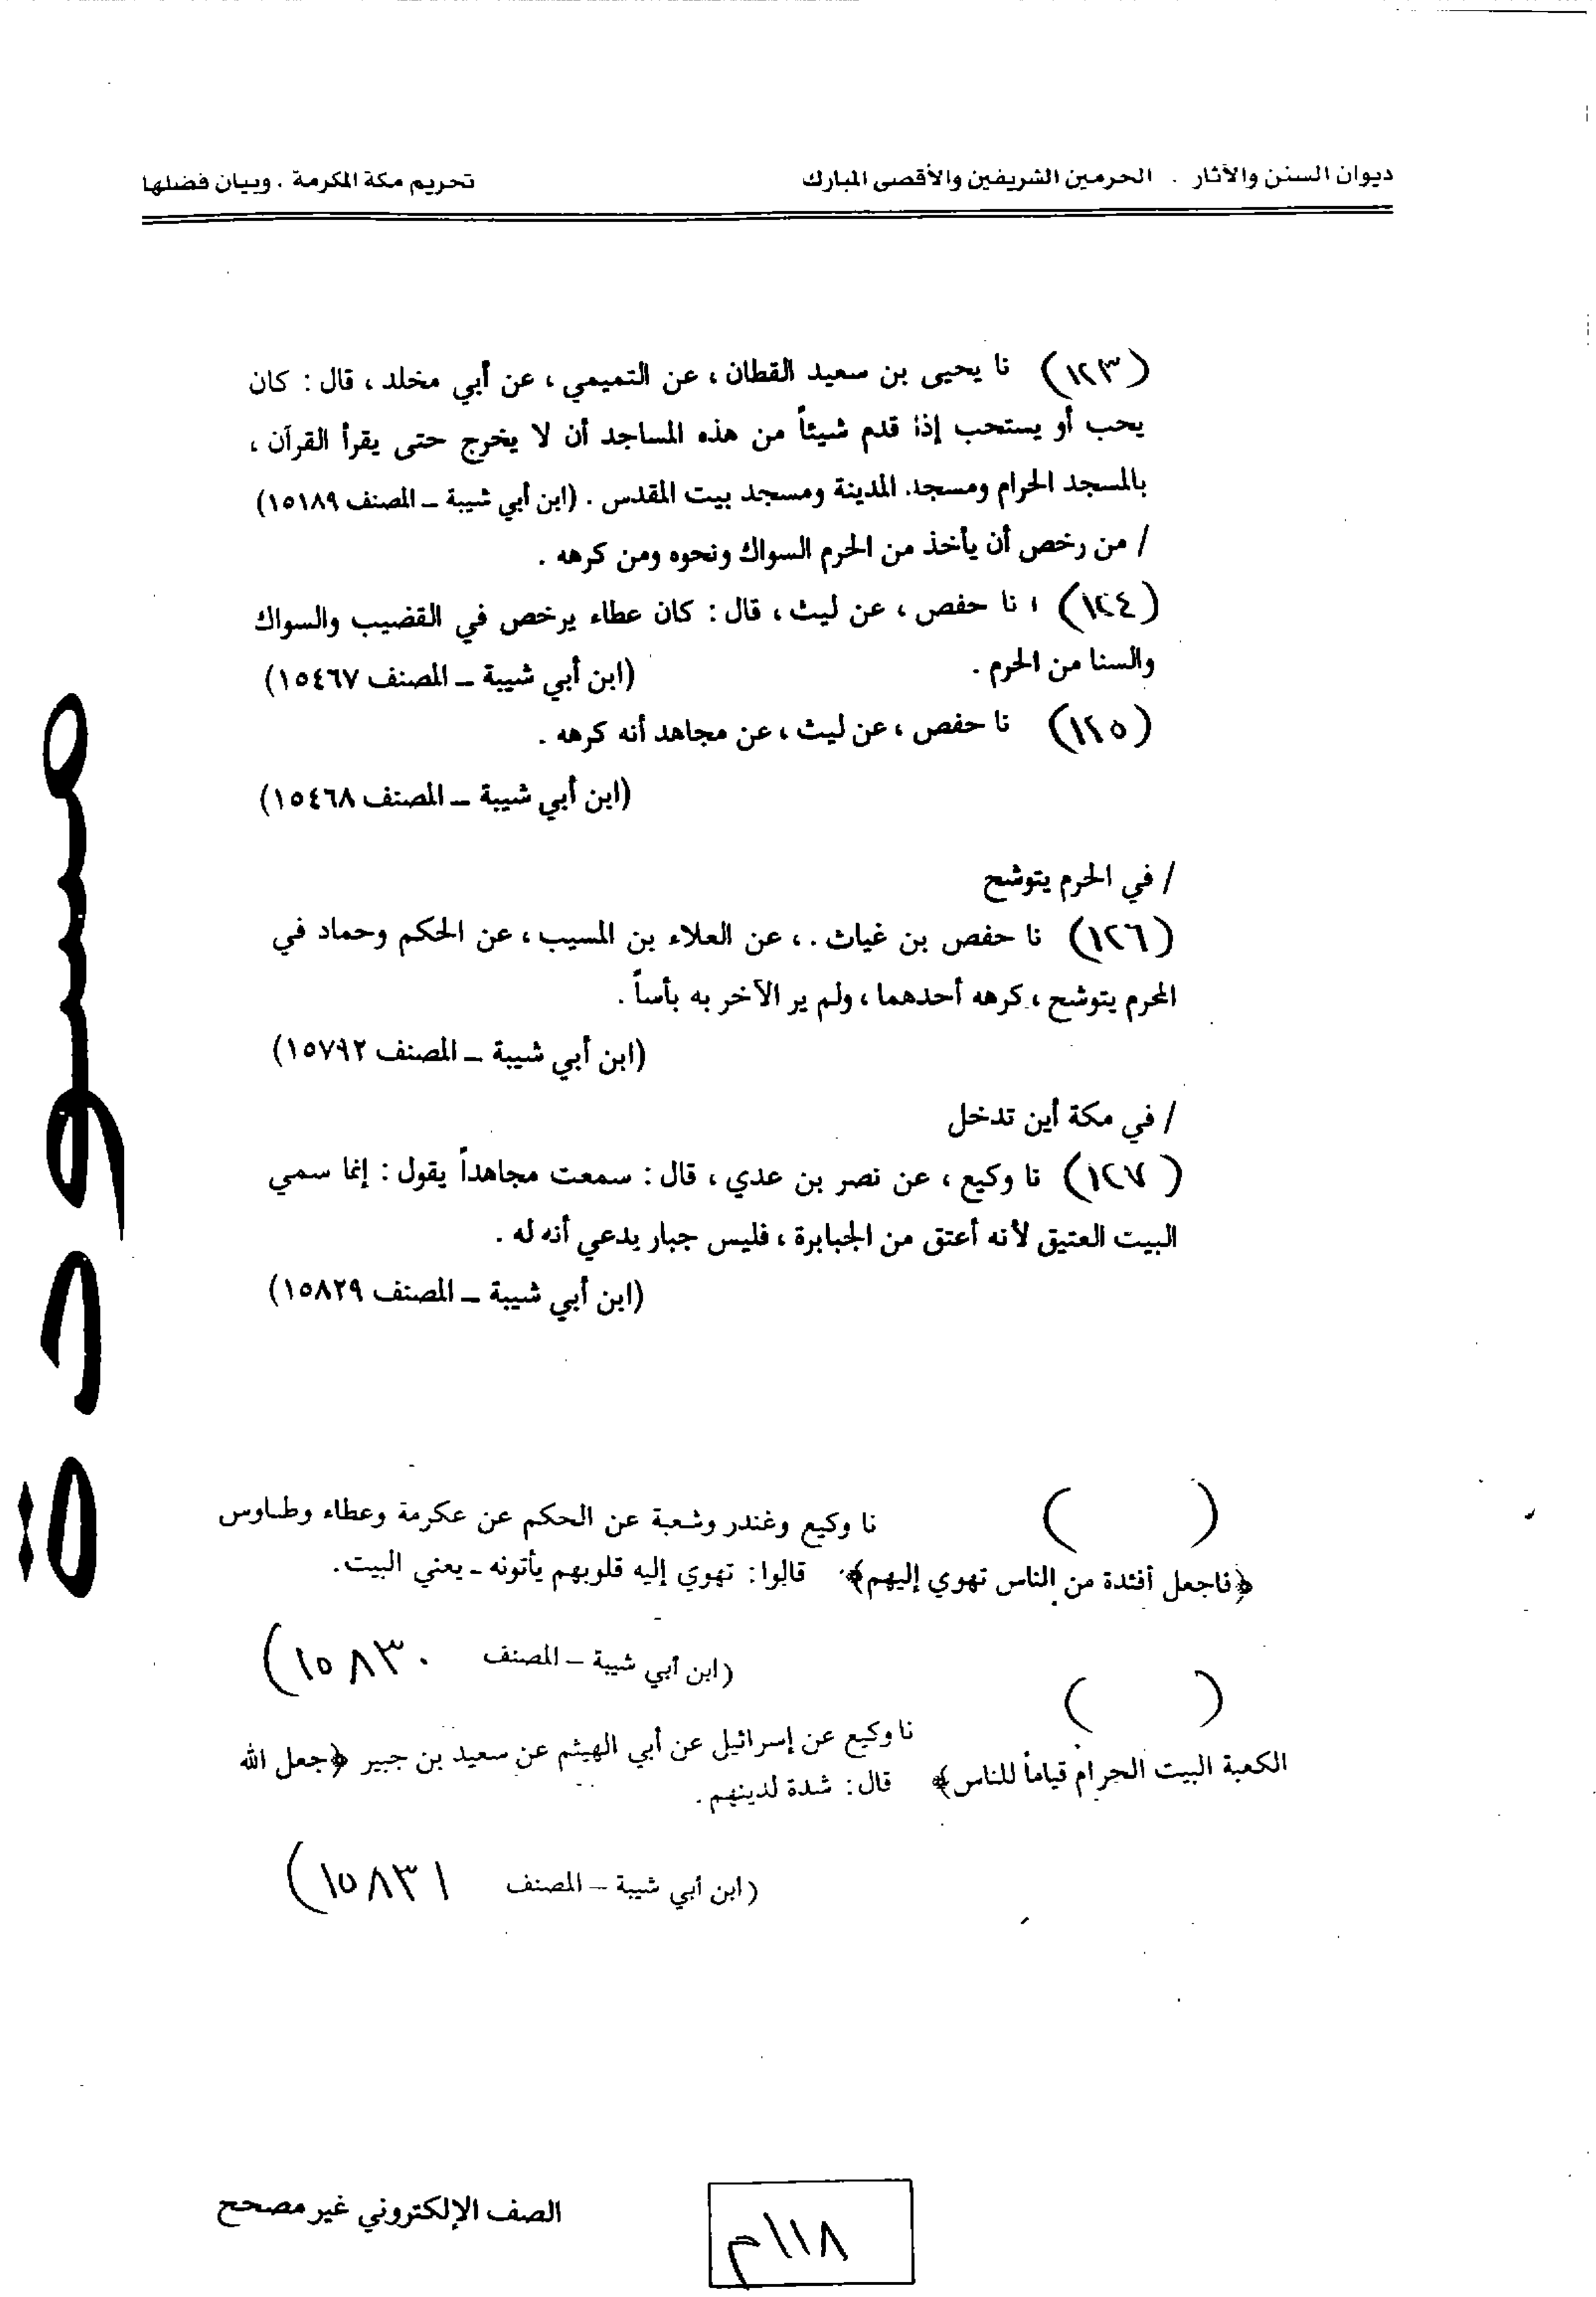 ديوان السنن والآثار . الحرمين الشريفين والأقصى المبارك
تحريم مكة المكرمة . وبيان فضلها
(١٢٣) نا يحيى بن سعيد القطان ، عن التميمي ، عن أبي مخلد ، قال : كان
يحب أو يستحب إذا قدم شيئاً من هذه المساجد أن لا يخرج حتى يقرأ القرآن ،
بالمسجد الحرام ومسجد. المدينة ومسجد بيت المقدس . (ابن أبي شيبة ـ المصنف ١٥١٨٩)
/ من رخص أن يأخذ من الحرم السواك ونحوه ومن كرهه .
(١٢٤) ، نا حفص ، عن ليث ، قال : كان عطاء يرخص في القضيب والسواك
والسنا من الحرم . (ابن أبي شيبة ـ المصنف ١٥٤٦٧)
(١٢٥) نا حفص ، عن ليث ، عن مجاهد أنه كرهه .
(ابن أبي شيبة ـ المصنف ١٥٤٦٨)
/ في الحرم يتوشح
(١٢٦) نا حفص بن غياث . ، عن العلاء بن المسيب ، عن الحكم وحماد في
المحرم يتوشح ، كرهه أحدهما ، ولم ير الآخر به بأساً .
(ابن أبي شيبة ـ المصنف ١٥٧٩٢)
/ في مكة أين تدخل
(١٢٧) نا وكيع ، عن نصر بن عدي ، قال : سمعت مجاهداً يقول : إنما سمي
البيت العتيق لأنه أعتق من الجبابرة ، فليس جبار يدعي أنه له .
(ابن أبي شيبة ـ المصنف ١٥٨٢٩)
( ) نا وكيع وغندر وشعبة عن الحكم عن عكرمة وعطاء وطاوس
﴿فاجعل أفئدة من الناس تهوي إليهم﴾ قالوا: تهوي إليه قلوبهم يأتونه ـ يعني البيت.
(ابن أبي شيبة ـ المصنف ١٥٨٣٠)
( ) نا وكيع عن إسرائيل عن أبي الهيثم عن سعيد بن جبير ﴿جعل الله
الكعبة البيت الحرام قياماً للناس﴾ قال: شدة لدينهم .
(ابن أبي شيبة ـ المصنف ١٥٨٣١)
مسودة
١١٨م
الصف الإلكتروني غير مصحح